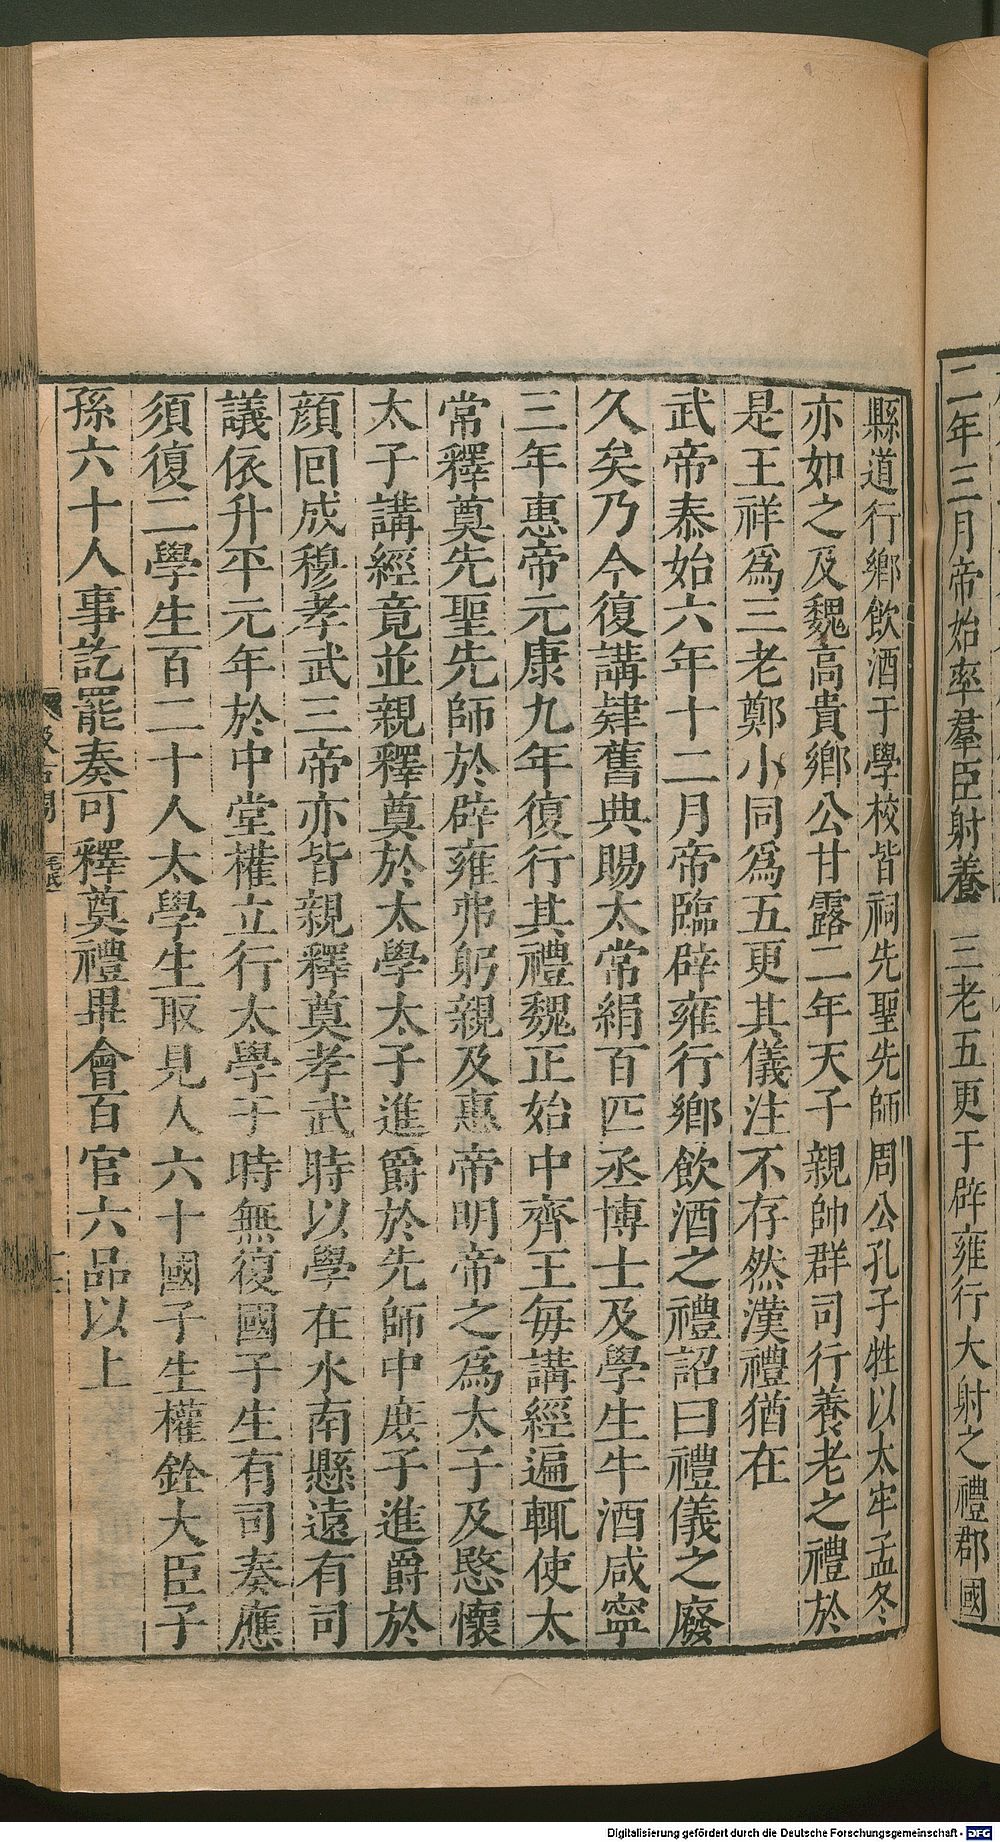 二年三月帝始率羣臣射養三老五更于辟雍行大射之禮郡國
縣道行鄉飲酒于學校皆祠先聖先師周公孔子牲以太牢孟冬
亦如之及魏高貴鄉公甘露二年天子親帥群司行養老之禮於
是王祥爲三老鄭小同爲五更其儀注不存然漢禮猶在
武帝泰始六年十二月帝臨辟雍行鄉飲酒之禮詔曰禮儀之廢
久矣乃今復講肄舊典賜太常絹百匹丞博士及學生牛酒咸寧
三年惠帝元康九年復行其禮魏正始中齊王每講經遍輒使太
常釋奠先聖先師於辟雍弗躬親及惠帝明帝之爲太子及愍懷
太子講經竟並親釋奠於太學太子進爵於先師中庶子進爵於
顔回成穆孝武三帝亦皆親釋奠孝武時以學在水南懸遠有司
議依升平元年於中堂權立行太學于時無復國子生有司奏應
須復二學生百二十人太學生取見人六十國子生權銓大臣子
孫六十人事訖罷奏可釋奠禮畢會百官六品以上
Digitalisierung gefördert durch die Deutsche Forschungsgemeinschaft - DFG